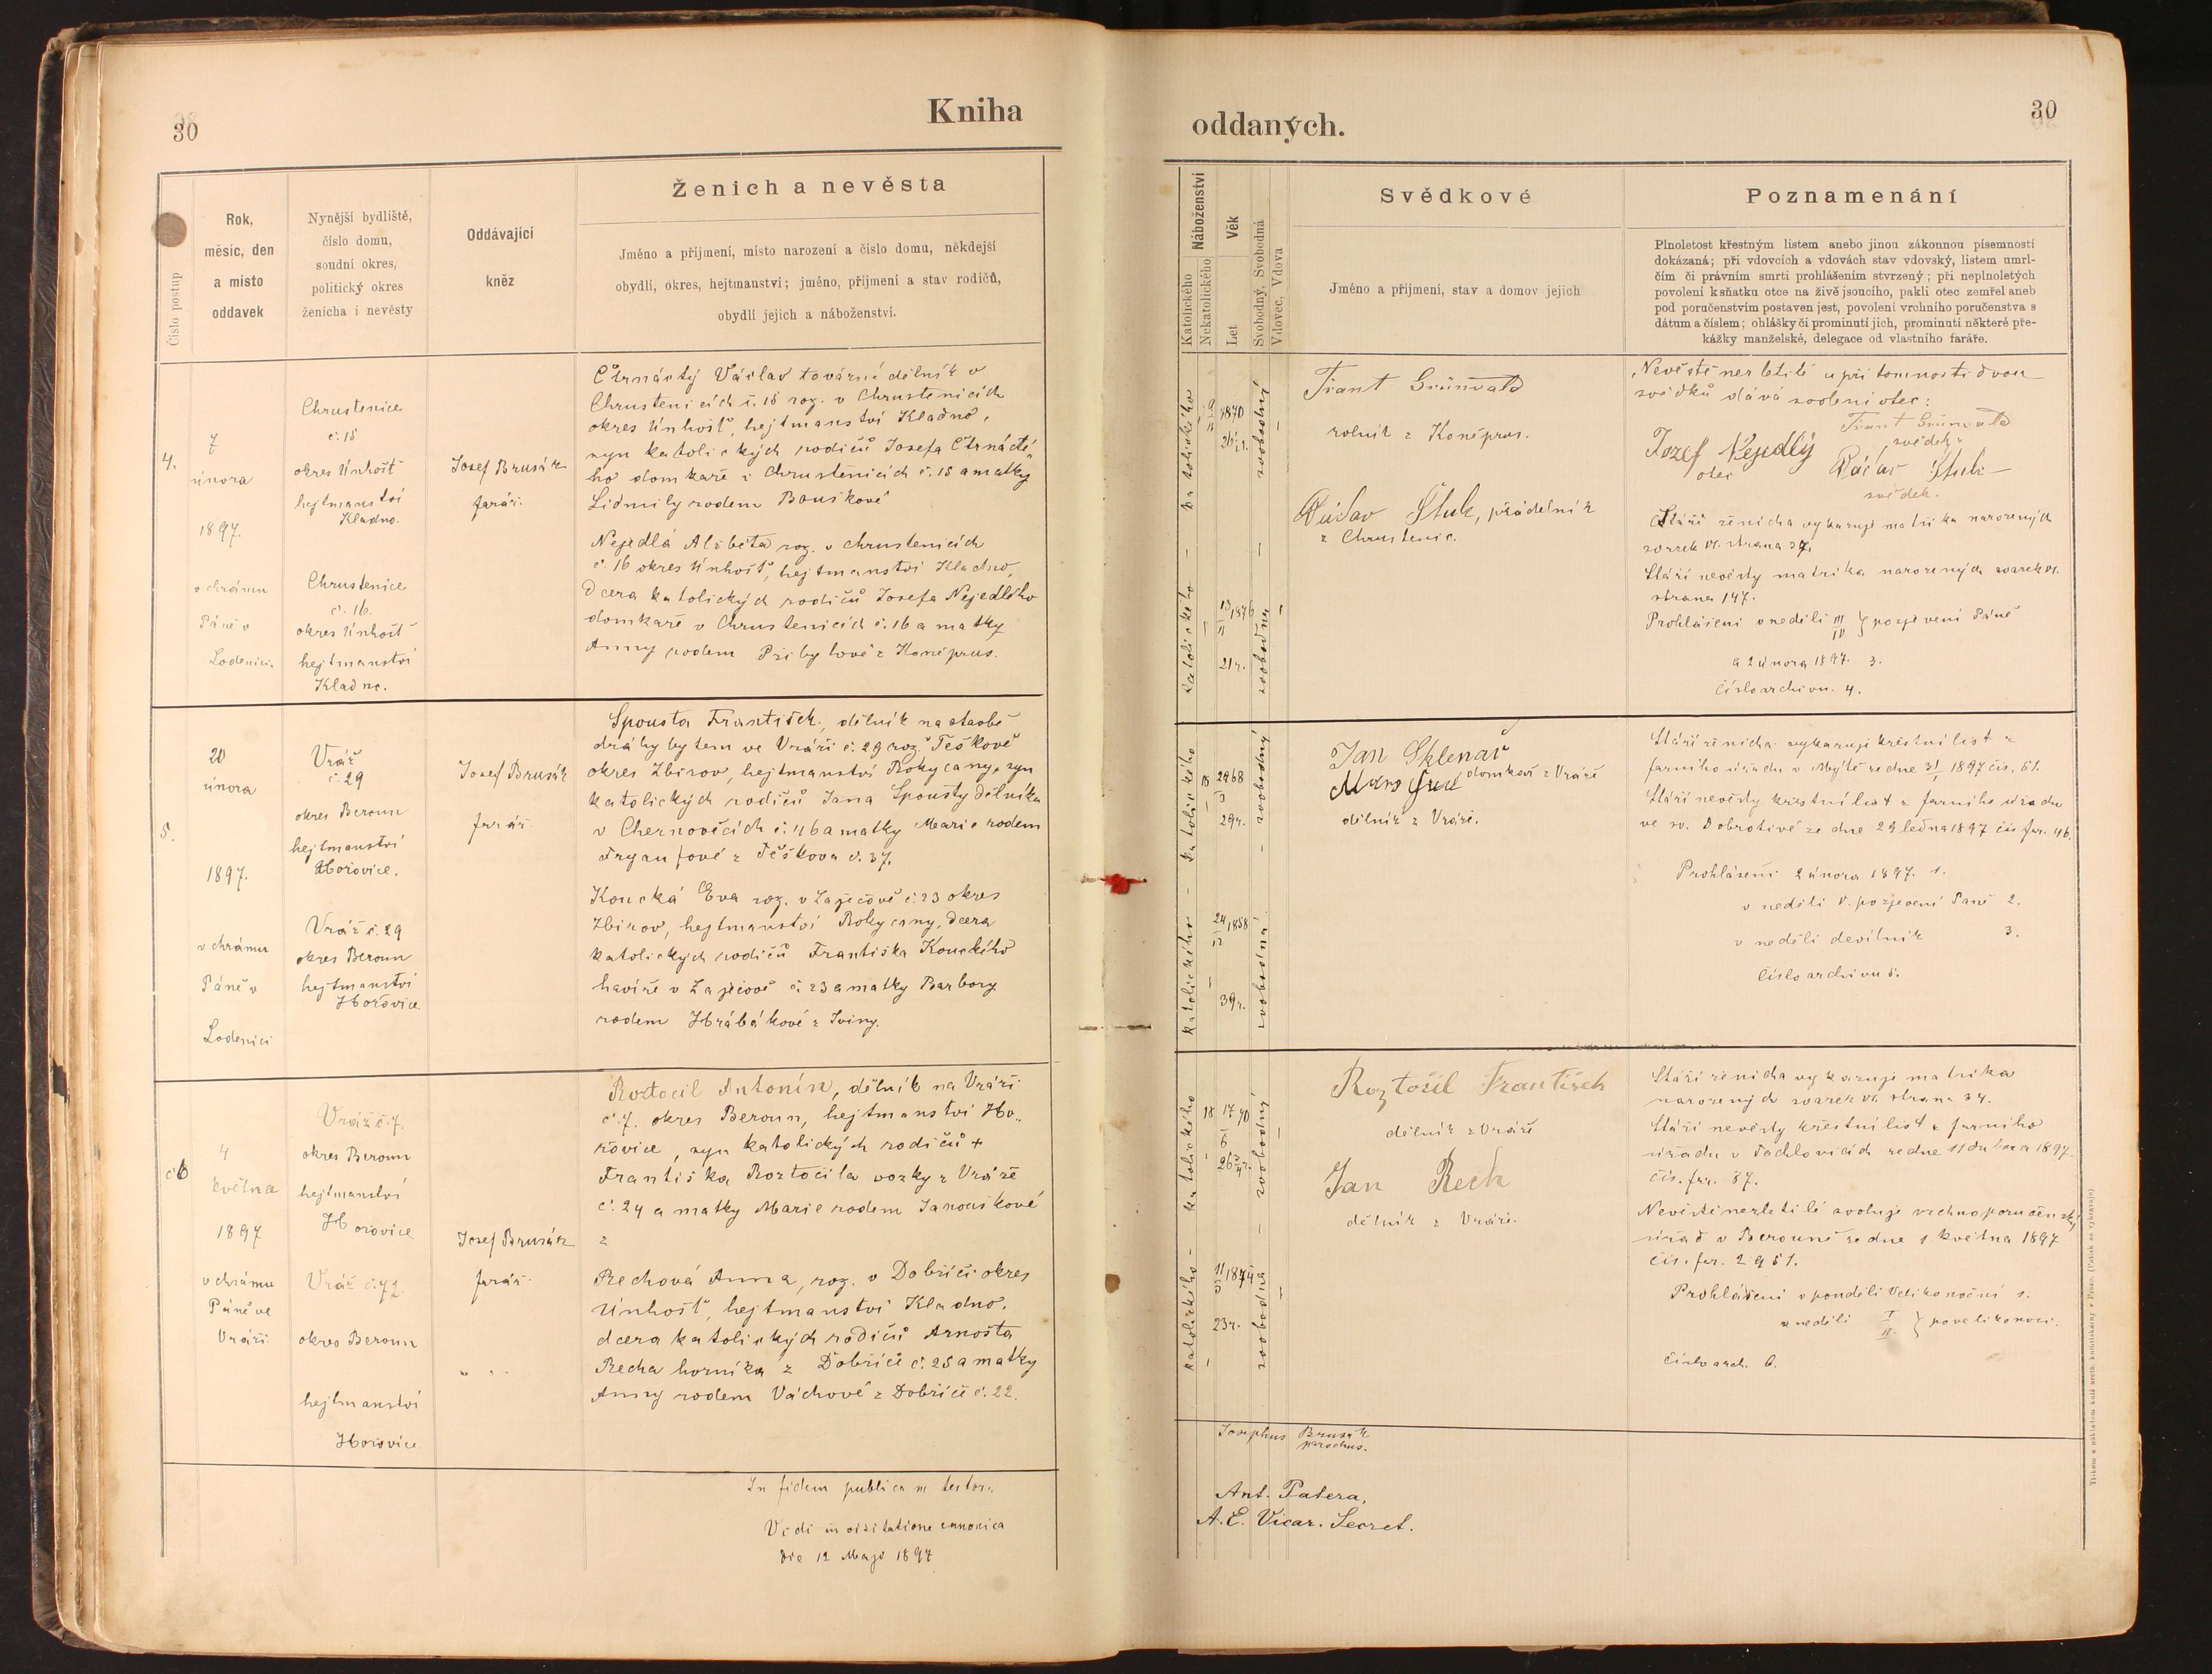 30
Kniha
Číslo postup
Rok,
měsíc, den
a místo
oddavek
Nynější bydliště,
číslo domu,
soudní okres,
politický okres
ženicha i nevěsty
Oddávající
kněz
Ženich a nevěsta
Jméno a příjmení, místo narození a číslo domu, někdejší
obydlí, okres, hejtmanství; jméno, příjmení a stav rodičů,
obydlí jejich a náboženství.
4.
7
února
1897.
v chrámu
Páně v
Loděnici.
Chrustenice
č. 18
okres Únhošť
hejtmanství
Kladno.
Chrustenice
č. 16.
okres Únhošť
hejtmanství
Kladno.
Josef Brusák
farář.
Čtrnáctý Václav tovární dělník v
Chrustenicích č. 18 roz. v Chrustenicích
okres Únhošť, hejtmanství Kladno,
syn katolických rodičů Josefa Čtrnácté-
ho domkaře z Chrustenicích č. 18 a matky
Lidmily rodem Bouškové
Nejedlá Alžběta roz. v Chrustenicích
č. 16 okres Únhošť, hejtmanství Kladno,
dcera katolických rodičů Josefa Nejedlého
domkaře v Chrustenicích č. 16 a matky
Anny rodem Přibylové z Koněprus.
5.
20
února
1897.
v chrámu
Páně v
Loděnici
Vráž
č. 29
okres Beroun
hejtmanství
Hořovice.
Vráž č. 29
okres Beroun
hejtmanství
Hořovice
Josef Brusák
farář
Spousta František, dělník na stavbě
dráhy bytem ve Vráži č. 29 roz. Těškově
okres Zbirov, hejtmanství Rokycany, syn
katolických rodičů Jana Spousty dělníka
v Cheznovicích č. 46 a matky Marie rodem
z Těškova č. 37.
Koucká Eva roz. v Zaječově č. 23 okres
Zbirov, hejtmanství Rokycany, dcera
katolických rodičů Františka Kouckého
havíře v Zaječově č. 23 a matky Barbory
rodem Hrabákové z Iviny.
6
4
května
1897
v chrámu
Páně ve
Vráži
Vráž č. 7.
okres Beroun
hejtmanství
Hořovice
Vráž č. 72.
okres Beroun
hejtmanství
Hořovice
Josef Brusák
farář
Roztočil Antonín, dělník na Vráži
č. 7. okres Beroun, hejtmanství Ho-
řovice, syn katolických rodičů +
Františka Roztočila vozky z Vráže
č. 24 a matky Marie rodem Janouškové
z
Rechová Anna, roz. v Dobříči okres
Únhošť, hejtmanství Kladno.
dcera katolických rodičů Arnošta
Recha horníka z Dobříče č. 28 a matky
Anny rodem Váchové z Dobříče č. 22.
In fidem publicam testor.
Vidi in visitatione canonica
die 12 Maji 1897
oddaných.
30
Náboženství
Katolického
Nekatolického
Věk
Let
Svobodný, Svobodná
Vdovec, Vdova
Svědkové
Jméno a příjmení, stav a domov jejich
Poznamenání
Plnoletost křestným listem anebo jinou zákonnou písemností
dokázaná; při vdovcích a vdovách stav vdovský, listem umrl-
čím či právním smrti prohlášením stvrzený; při neplnoletých
povolení k sňatku otce na živě jsoucího, pakli otec zemřel aneb
pod poručenstvím postaven jest, povolení vrchního poručenstva s
dátum a číslem; ohlášky či prominutí jich, prominutí některé pře-
kážky manželské, delegace od vlastního faráře.
katolického
1870
26 r.
svobodný
katolického
13/11 1876
21 r.
svobodná
Frant Grünvald
rolník z Koněprus.
Václav Štuk, přádelník
z Chrustenic.
Nevěstě nezletilé u přítomnosti dvou
svědků dává svolení otec:
Frant Grünvald
svědek
Jozef Nejedlý
otec
Václav Štuk
svědek.
Stáří ženicha vykazuje matrika narozených
svazek VI. strana 37.
Stáří nevěsty matrika narozených svazek VI.
strana 147.
Prohlášení v neděli III IV } po zjevení Páně
a 2 února 1897. 3.
Číslo archivu. 4.
katolického
1868
29 r.
svobodný
katolického
24/12 1858
39 r.
svobodná
Jan Sklenář
domkář z Vráže
dělník z Vráže.
Stáří ženicha vykazuje křestní list z
farního úřadu v Mýtě ze dne 31/1 1897 čís. 51.
Stáří nevěsty křestní list z farního úřadu
ve sv. Dobrotivé ze dne 29 ledna 1897 čís. far. 46.
Prohlášení 2 února 1897. 1.
v neděli V. po zjevení Páně 2.
v neděli devítník 3.
Číslo archivu 5.
katolického
17/6 70
26 3/4 r.
svobodný
katolického
11/5 1874
23 r.
svobodná
Roztočil František
dělník z Vráže
Jan Rech
dělník z Vráže.
Stáří ženicha vykazuje matrika
narozených svazek VI. strana 34.
Stáří nevěsty křestní list z farního
úřadu v Tachlovicích ze dne 11 dubna 1897.
čís. far. 87.
Nevěstě nezletilé svoluje vrchnoporučenský
úřad v Berouně ze dne 1 května 1897
čís. far. 2951.
Prohlášení v pondělí Velikonoční 1.
v neděli I II. } po velikonoci.
Číslo arch. 6.
Josephus Brusák
parochus.
Ant. Patera,
A. E. Vicar. Secret.